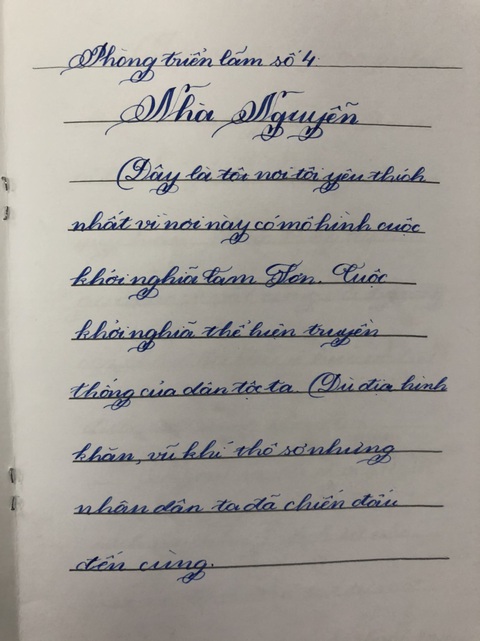 Phòng triển lãm số 4
Nhà Nguyễn
Đây là tôi nơi tôi yêu thích
nhất vì nơi này có mô hình cuộc
khởi nghĩa Lam Sơn. Cuộc
khởi nghĩa thể hiện truyền
thống của dân tộc ta. Dù địa hình
khăn, vũ khí thô sơ nhưng
nhân dân ta đã chiến đấu
đến cùng.